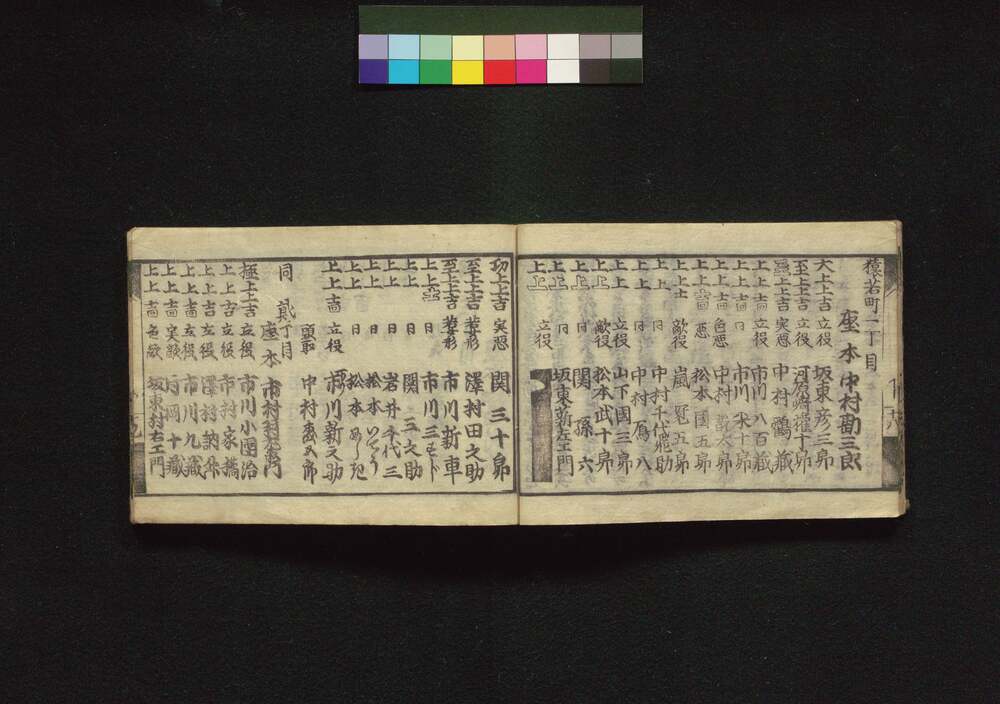 猿若町一丁目
座本 中村勘三郎
大上上吉 立役 坂東彦三郎
至上上吉 立役 河原崎權十郎
上上吉 実悪 中村鶴藏
上上吉 立役 市川八百藏
上上吉 日 市川米十郎
上上吉 色悪 中村 太郎
上上吉 悪 松本國五郎
上上士 敵役 嵐冠五郎
上上 日 中村千代飛助
上上 日 中村雁八
上上 立役 山下國三郎
上上 敵役 松本武十郎
上上 日 関孫六
上上 日 坂東薪左エ門
上上 立役
功上上吉 実悪 関三十郎
至上上吉 若衆形 澤村田之助
至上上吉 若衆形 市川新車
上上 日 市川三すじ
上上 日 関三之助
上上 日 岩井千代三
上上 日 松本
上上 日 松本
上上吉 立役 市川新之助
頭取 中村
同 貳丁目
座本 市村羽左衛門
極上上吉 立役 市川小團治
上上吉 立役 市村家橘
上上吉 立役 澤村訥舛
上上吉 立役 市川九藏
上上吉 実敵 片岡十藏
上上吉 色敵 坂東村右エ門